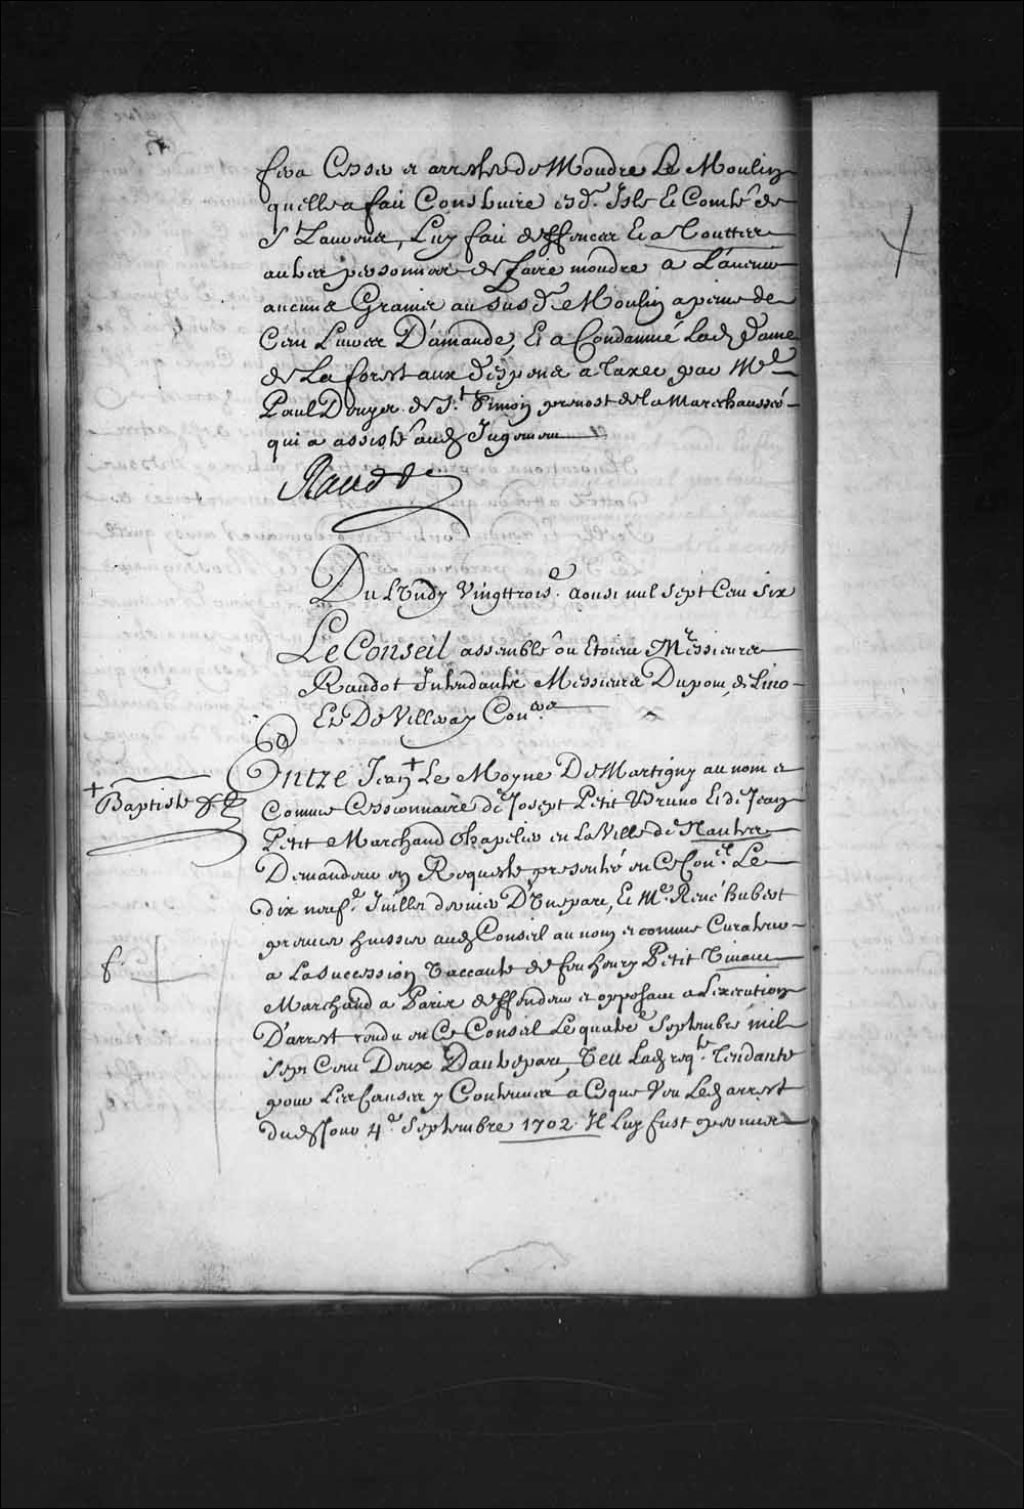 fera Cesser et arrester de Moudre Le Moulin
quelle a fait Construire esd. Isle et Comté de
St Laurens, Luy fait deffences Et a Touttes
autres personnes de faire moudre a L'avenir
aucuns Grains au susd. Moulin a peine de
Cent Livres D'amande, Et a Condamné Lad. Dame
de La forest aux Despens a taxer par Me
Paul Dupuy de St. Simon prevost de la Mareshaussée
qui a assisté aud. Jugement
Raudot
Du Lundy Vingttroise. aoust mil sept Cent Six
Le Conseil assemblé ou Etoient Messieurs
Raudot Intendants Messieurs Dupont, de Lino
Et De Villeray Coners
Entre Jean + Le Moyne De Martigny au nom et
+ Baptiste
Comme Cessionnaire de Josept Petit Bruno Et de Jean
Petit Marchand Chapelier en La Ville de Nantes
Demandeur en Requeste presentée en Ce Conel. Le
dix neufe. Juillet dernier D'Unepart, Et Me. René hubert
premier huissier aud. Conseil au nom et comme Curateur
a La Succession Vaccante de feu henry Petit Vivant
Marchand a Paris deffendeur et opposant a Lexecution
D'arrest rendu en Ce Conseil Le quatre Septembre mil
sept Cent Deux D'autrepart, Veu Lad. reqte. Tendante
pour Les Causes y Contenües a Ce que Veu Led. arrest
dud. Jour 4e Septembre 1702 Il Luy fust permis